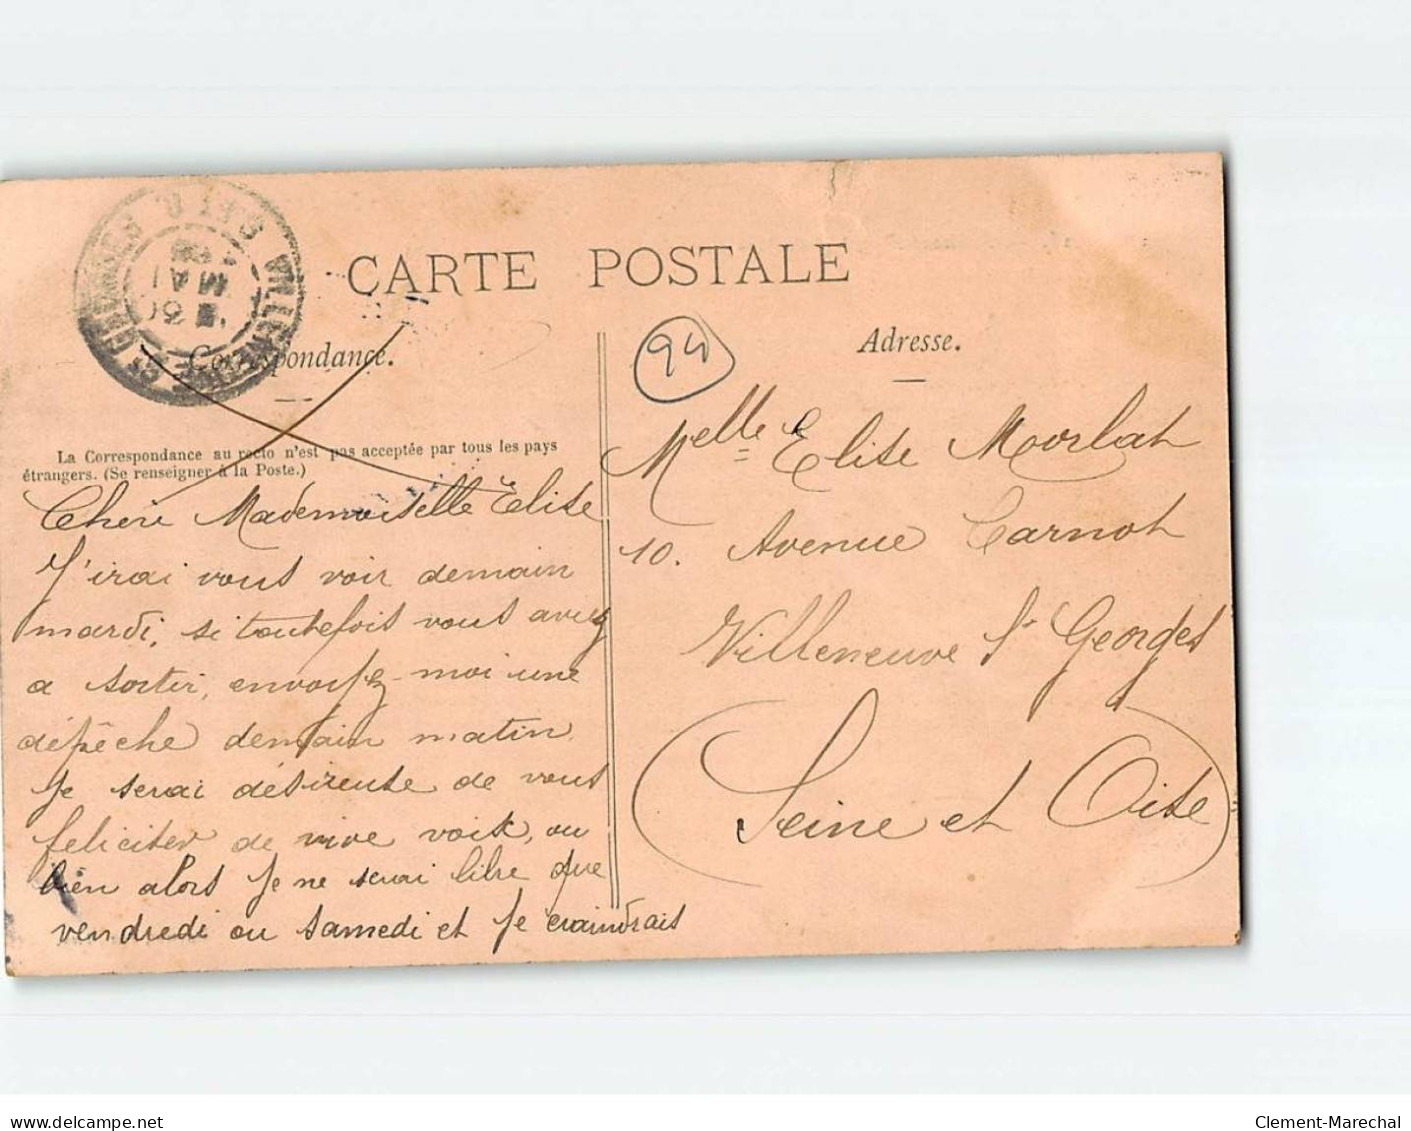 CARTE POSTALE
Correspondance.
La Correspondance au recto n'est pas acceptée par tous les pays
étrangers. (Se renseigner à la Poste.)
Chère Mademoiselle Elise
J'irai vous voir demain
mardi, si toutefois vous avez
a sortir, envoyez-moi une
dépêche demain matin.
Je serai désireuse de vous
feliciter de vive voix, ou
bien alors je ne serai libre que
vendredi ou samedi et je craindrais
94
Adresse.
Melle Elise Morlat
10. Avenue Carnot
Villeneuve St Georges
Seine et Oise
VILLENEUVE ST GEORGES S. ET O.
MAI
delcampe.net
Clement-Marechal